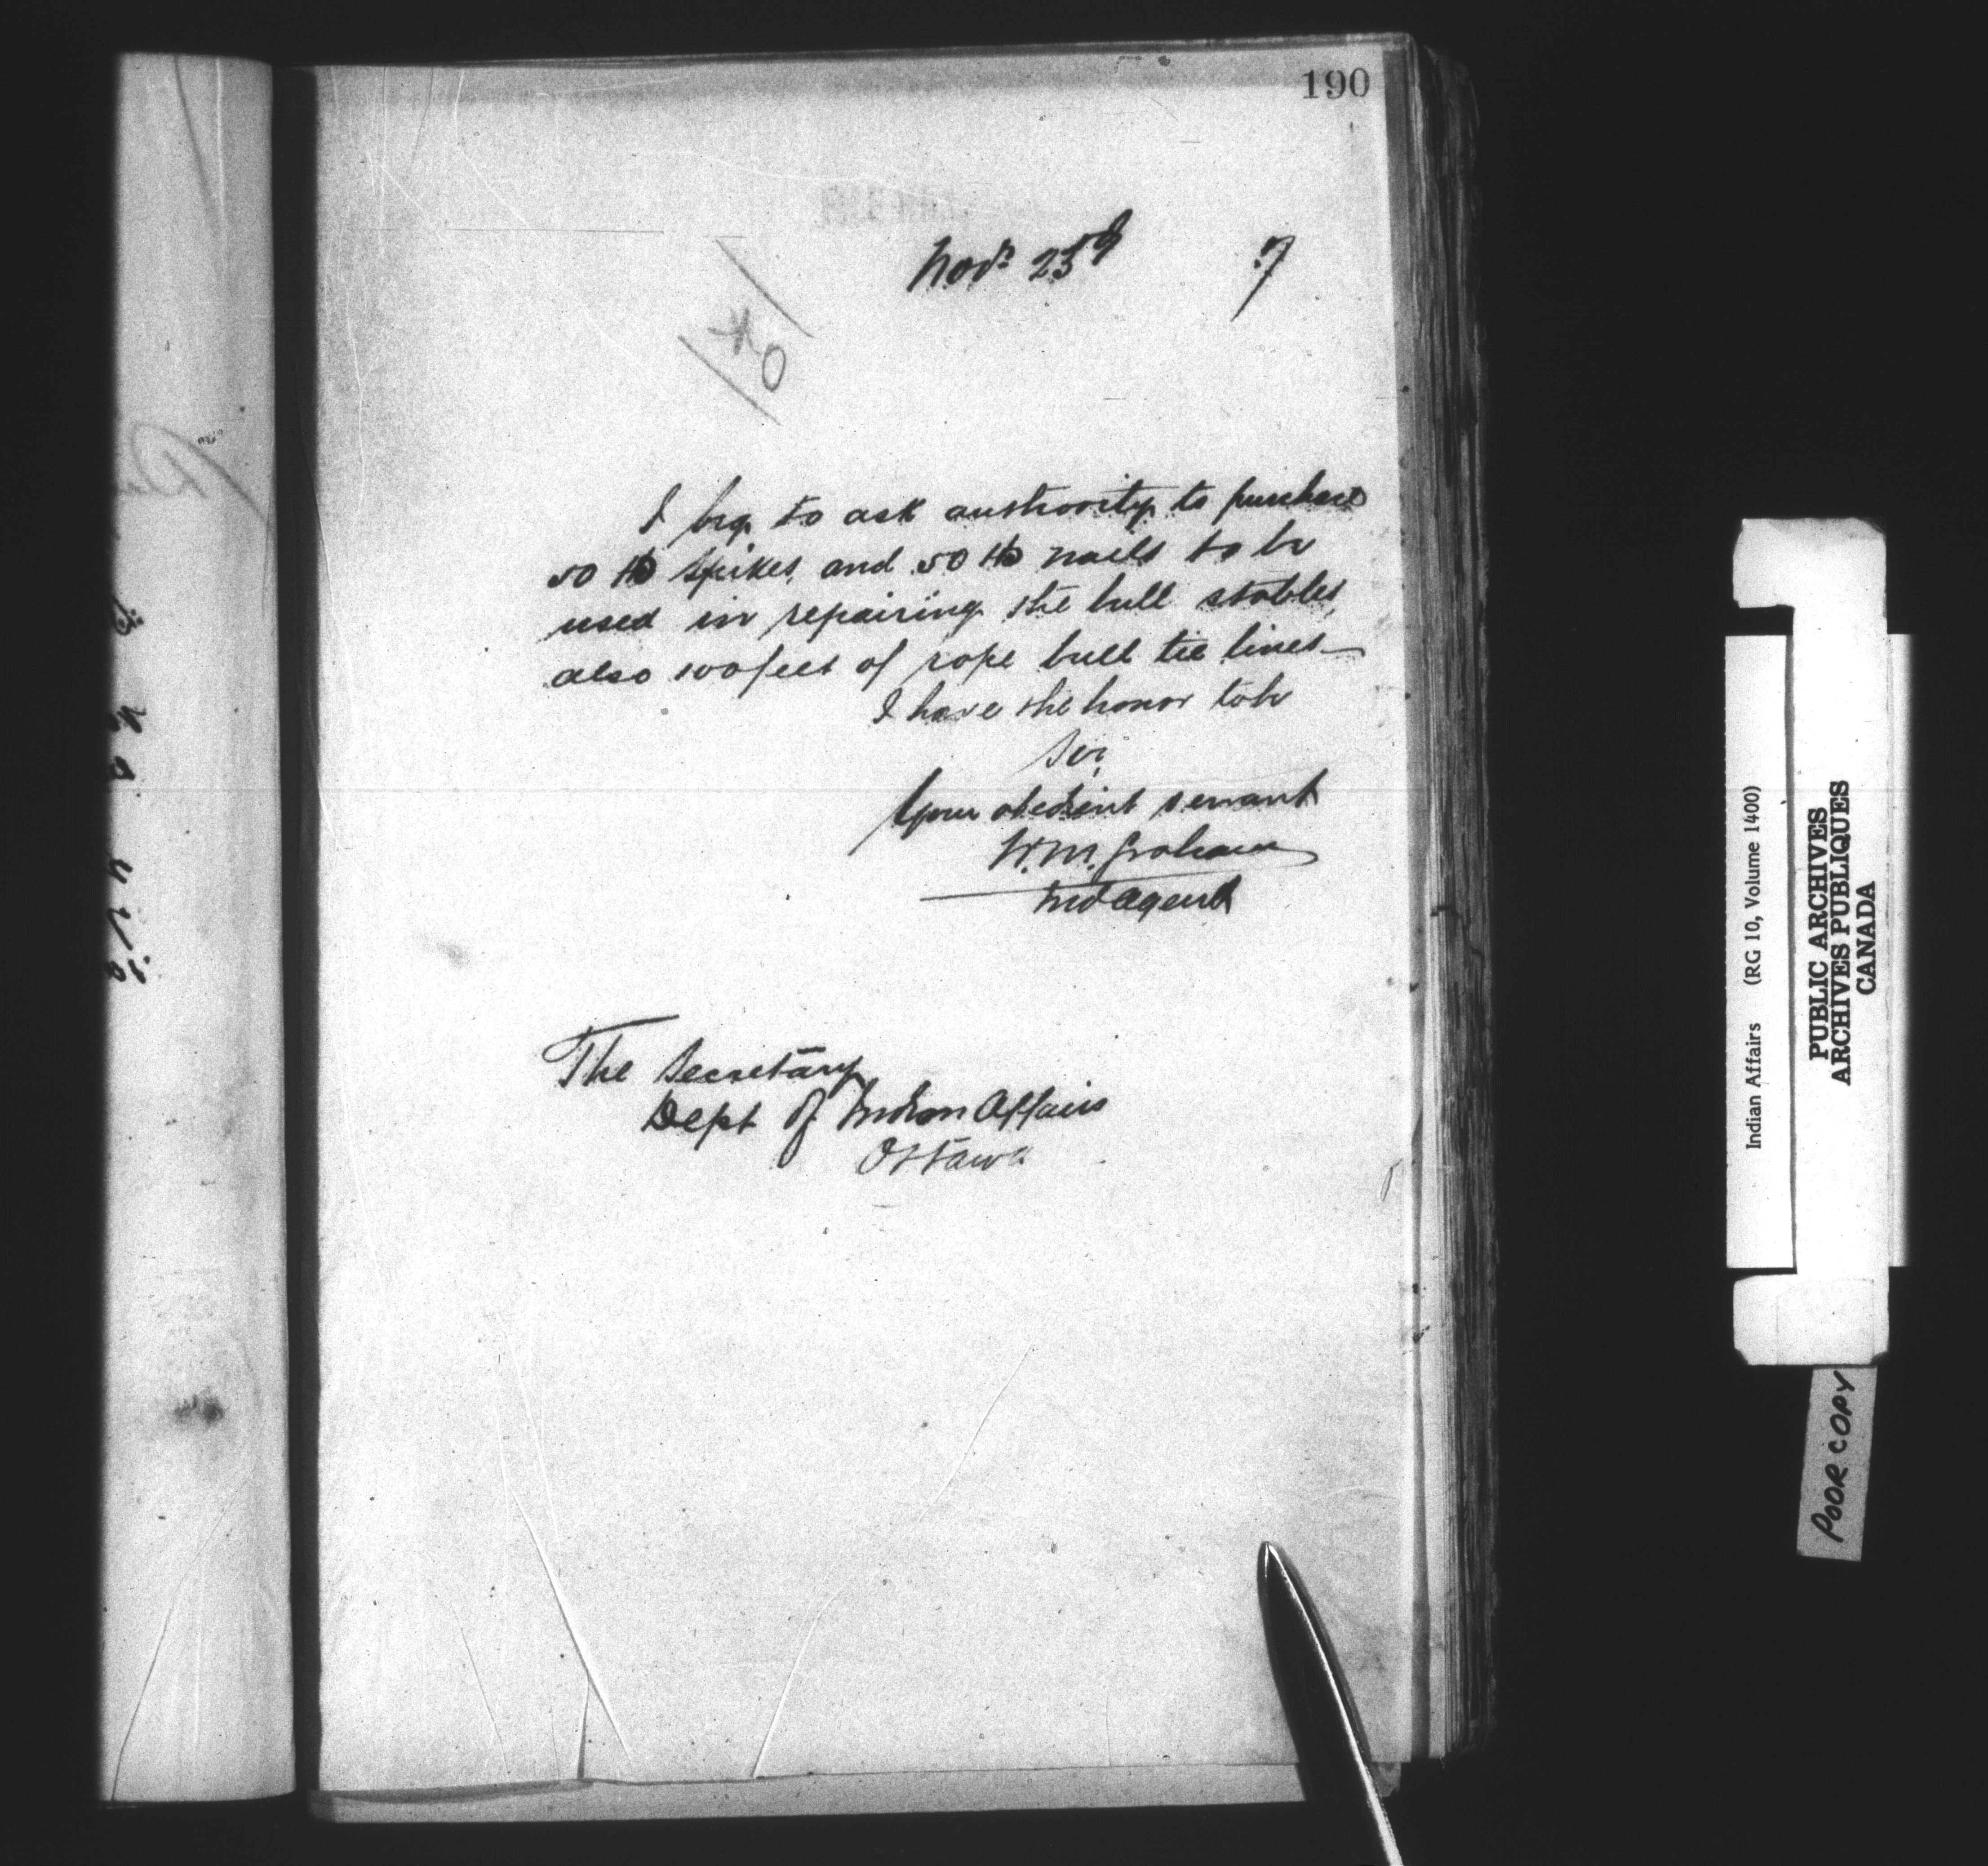 190
Nov. 23rd 7
OK
I beg to ask authority to purchase
50 lb spikes, and 50 lb nails to be
used in repairing the bull stables,
also 100 feet of rope bull tie lines—
I have the honor to be
Sir,
Your obedient servant
W. M. Graham
Ind Agent
The Secretary
Dept of Indian Affairs
Ottawa
Indian Affairs (RG 10, Volume 1400)
PUBLIC ARCHIVES
ARCHIVES PUBLIQUES
CANADA
POOR COPY